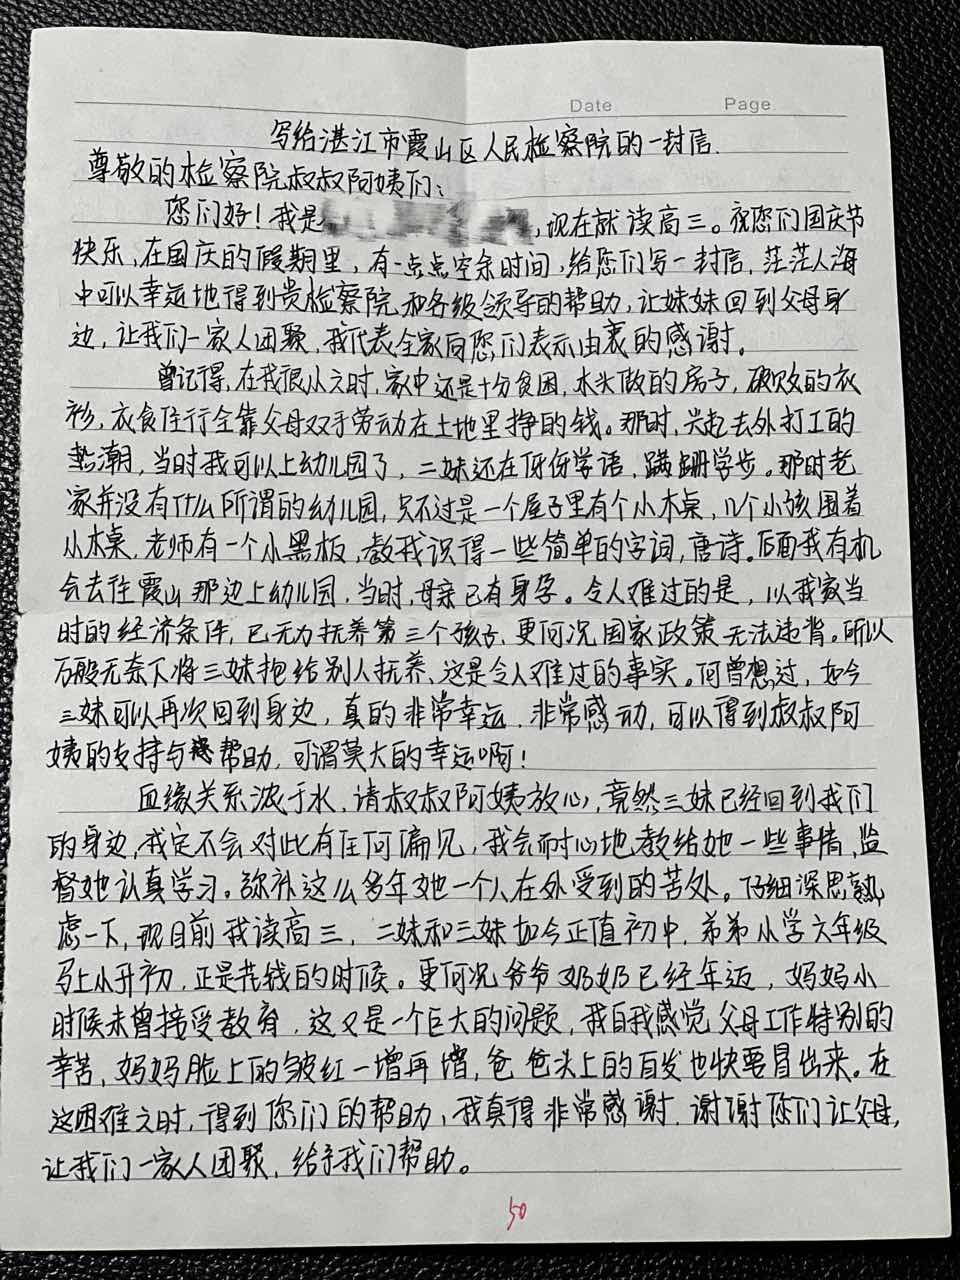 Date Page
写给湛江市霞山区人民检察院的一封信.
尊敬的检察院叔叔阿姨们:
您们好!我是,现在就读高三。祝您们国庆节
快乐,在国庆的假期里,有一点点空余时间,给您们写一封信,茫茫人海
中可以幸运地得到贵检察院和各级领导的帮助,让妹妹回到父母身
边,让我们一家人团聚,我代表全家向您们表示由衷的感谢。
曾记得,在我很小之时,家中还是十分贫困,木头做的房子,破败的衣
衫,衣食住行全靠父母双手劳动在土地里挣的钱。那时,兴起去外打工的
热潮,当时我可以上幼儿园了,二妹还在伢伢学语,蹒跚学步。那时老
家并没有什么所谓的幼儿园,只不过是一个屋子里有个小木桌,几个小孩围着
小木桌,老师有一个小黑板,教我识得一些简单的字词,唐诗。后面我有机
会去往霞山那边上幼儿园,当时,母亲已有身孕。令人难过的是,以我家当
时的经济条件,已无力抚养第三个孩子,更何况国家政策无法违背。所以
万般无奈下将三妹抱给别人抚养,这是令人难过的事实。何曾想过,如今
三妹可以再次回到身边,真的非常幸运,非常感动,可以得到叔叔阿
姨的支持与帮助,可谓莫大的幸运啊!
血缘关系浓于水,请叔叔阿姨放心,竟然三妹已经回到我们
的身边,我定不会对此有任何偏见,我会耐心地教给她一些事情,监
督她认真学习。弥补这么多年她一个人在外受到的苦处。仔细深思熟
虑一下,现目前我读高三,二妹和三妹如今正值初中,弟弟小学六年级
马上小升初,正是花钱的时候。更何况爷爷奶奶已经年迈,妈妈小
时候未曾接受教育,这又是一个巨大的问题,我自我感觉父母工作特别的
幸苦,妈妈脸上的皱红一增再增,爸爸头上的百发也快要冒出来。在
这困难之时,得到您们的帮助,我真得非常感谢.谢谢您们让父母,
让我们一家人团聚,给予我们帮助。
50